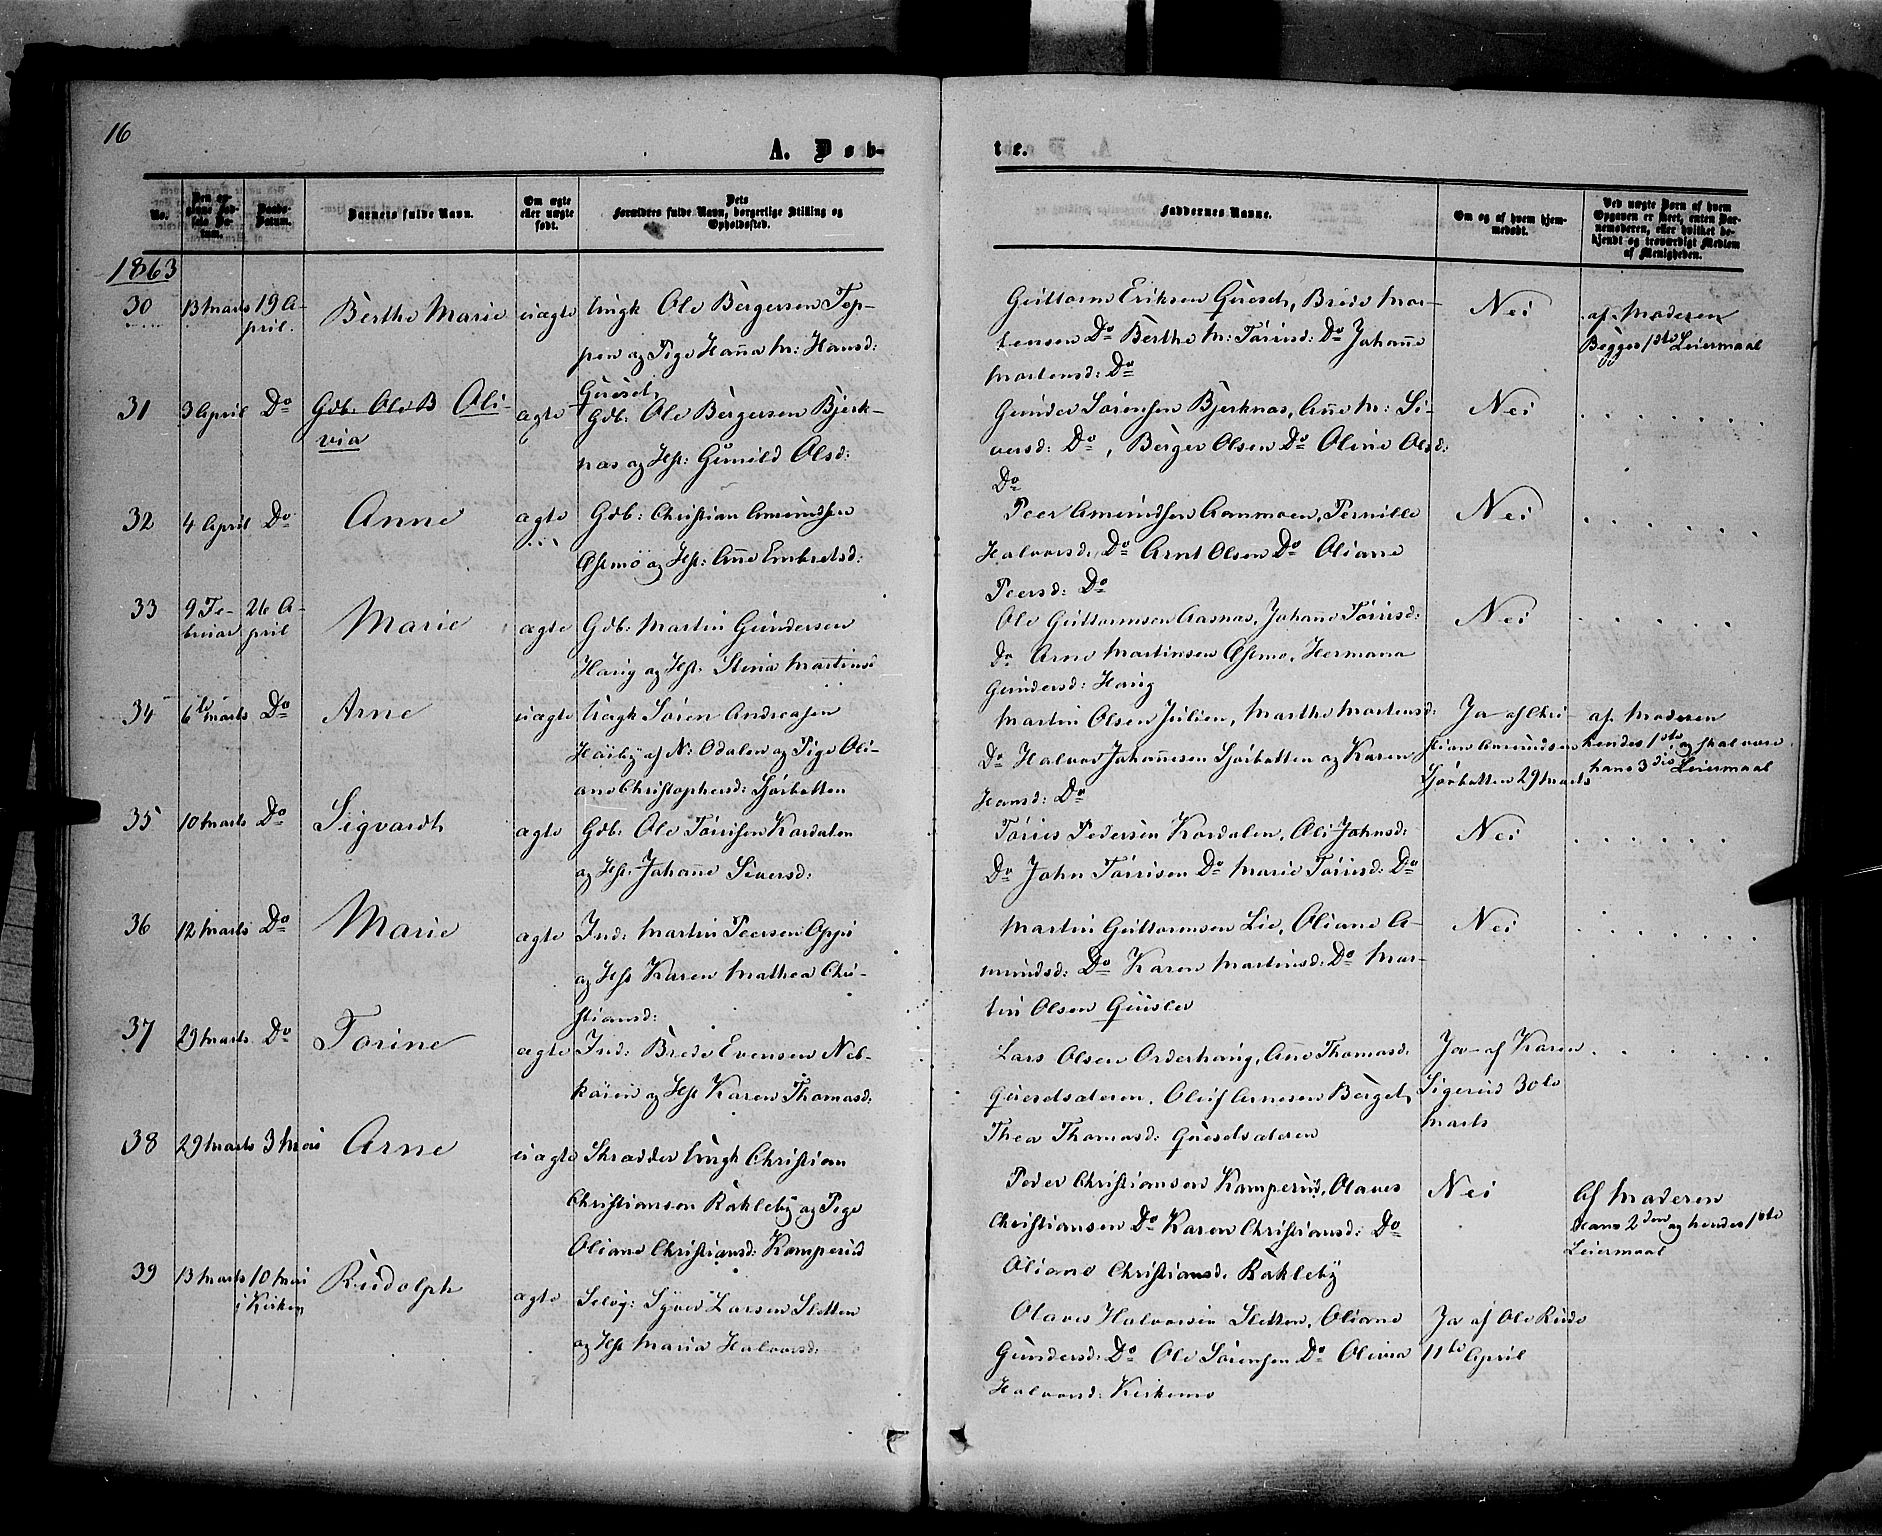 16
A. Døb-
te.
No.
Den op-
givne Fød-
sels Da-
tum.
Daabs-
Datum.
Barnets fulde Navn.
Om ægte
eller uægte
født.
Dets
Forældres fulde Navn, borgerlige Stilling og
Opholdssted.
Faddernes Navne.
Om og af hvem hjem-
medøbt.
Ved uægte Børn af hvem
Opgaven er skeet, enten Bar-
nemoderen, eller hvilket be-
kjendt og troværdigt Medlem
af Menigheden.
1863
30 13 Marts 19 A-
pril. Berthe Marie uægte Ungk Ole Bergersen Top-
pen og Pige Hanna M: Hansd:
Guttorm Eriksen Brede Mor-
tensen Do Berthe M: Tørrisd: Do Johanne
Mortensd: Do
Nei
af Moderen
Begges 1ste Leiermaal
31 3 April Do Gdb: Ole B Oli-
via ægte Gdb: Ole Bergersen Bjerk-
næs og Hst: Gunild Olsd:
Gunder Sørensen Bjerknæs, Anne M: Si-
versd: Do, Berger Olsen Do Oline Olsd:
Do
Nei
32 4 April Do Anne ægte Gdb: Christian Amundsen
Østmo og Hst: Anne Embretsd:
Peer Amundsen Aammoen, Pernille
Halvorsd: Do Arnt Olsen Do Oliane
Peersd: Do
Nei
33 9 Fe-
bruar 26 A-
pril Marie ægte Gdb: Martin Gundersen
Harig og Hst: Stina Martinsd
Ole Guttormsen Aasnæs, Johanne Tørrisd:
Do Arne Martinsen Østmo, Hermana
Gundersd: Harig
Nei
34 6te Marts Do Arne uægte Ungk Søren Andreasen
Høiby af N: Odalen og Pige Oli-
ane Christophersd: Sjørbotten
Martin Olsen Julien, Marthe Mortensd:
Do Halvor Johannesen Sjørbotten og Karen
Hansd: Do
Ja af Chri-
stian Amundsen
Sjørbotten 29 Marts
af Moderen
hendes 1ste og skal være
hans 3die Leiermaal
35 10 Marts Do Sigvardt ægte Gdb: Ole Tørrisen Kordalen
og Hst. Johanne Siversd:
Tørris Pedersen Kordalen, Oli Johnsd:
Do John Tørrisen Do Marie Tørrisd: Do
Nei
36 12 Marts Do Marie ægte Ind: Martin Peersen Oppi
og Hst Karen Mathea Chri-
stiansd:
Martin Guttormsen Lie, Oliane A-
mundsd: Do Karen Martinsd: Do Mar-
tin Olsen
Nei
37 29 Marts Do Torine ægte Ind: Brede Evensen Neb-
og Hst Karen Thomasd:
Lars Olsen Orderhaug, Anne Thomasd.
Oluf Arnesen Berget,
Thea Thomasd:
Ja af Karen
Sigerud 30te
Marts
38 29 Marts 3 Mai Arne uægte Skrædder Ungk Christian
Christiansen Rakleby og Pige
Oliane Christiansd: Kamperud
Peder Christiansen Kamperud, Olaves
Christiansen Do Karen Christiansd: Do
Oliane Christiansd: Rakleby
Nei
Af Moderen
Hans 2den og hendes 1ste
Leiermaal
39 13 Marts 10 Mai
i Kirken Rudolph ægte Selvg: Syver Larsen Sletten
og Hst Maria Halvorsd:
Olaves Halvorsen Sletten, Oliane
Gundersd: Do Ole Sørensen Do Olivia
Halvorsd: Kirkemo
Ja af Ole Rude
11te April